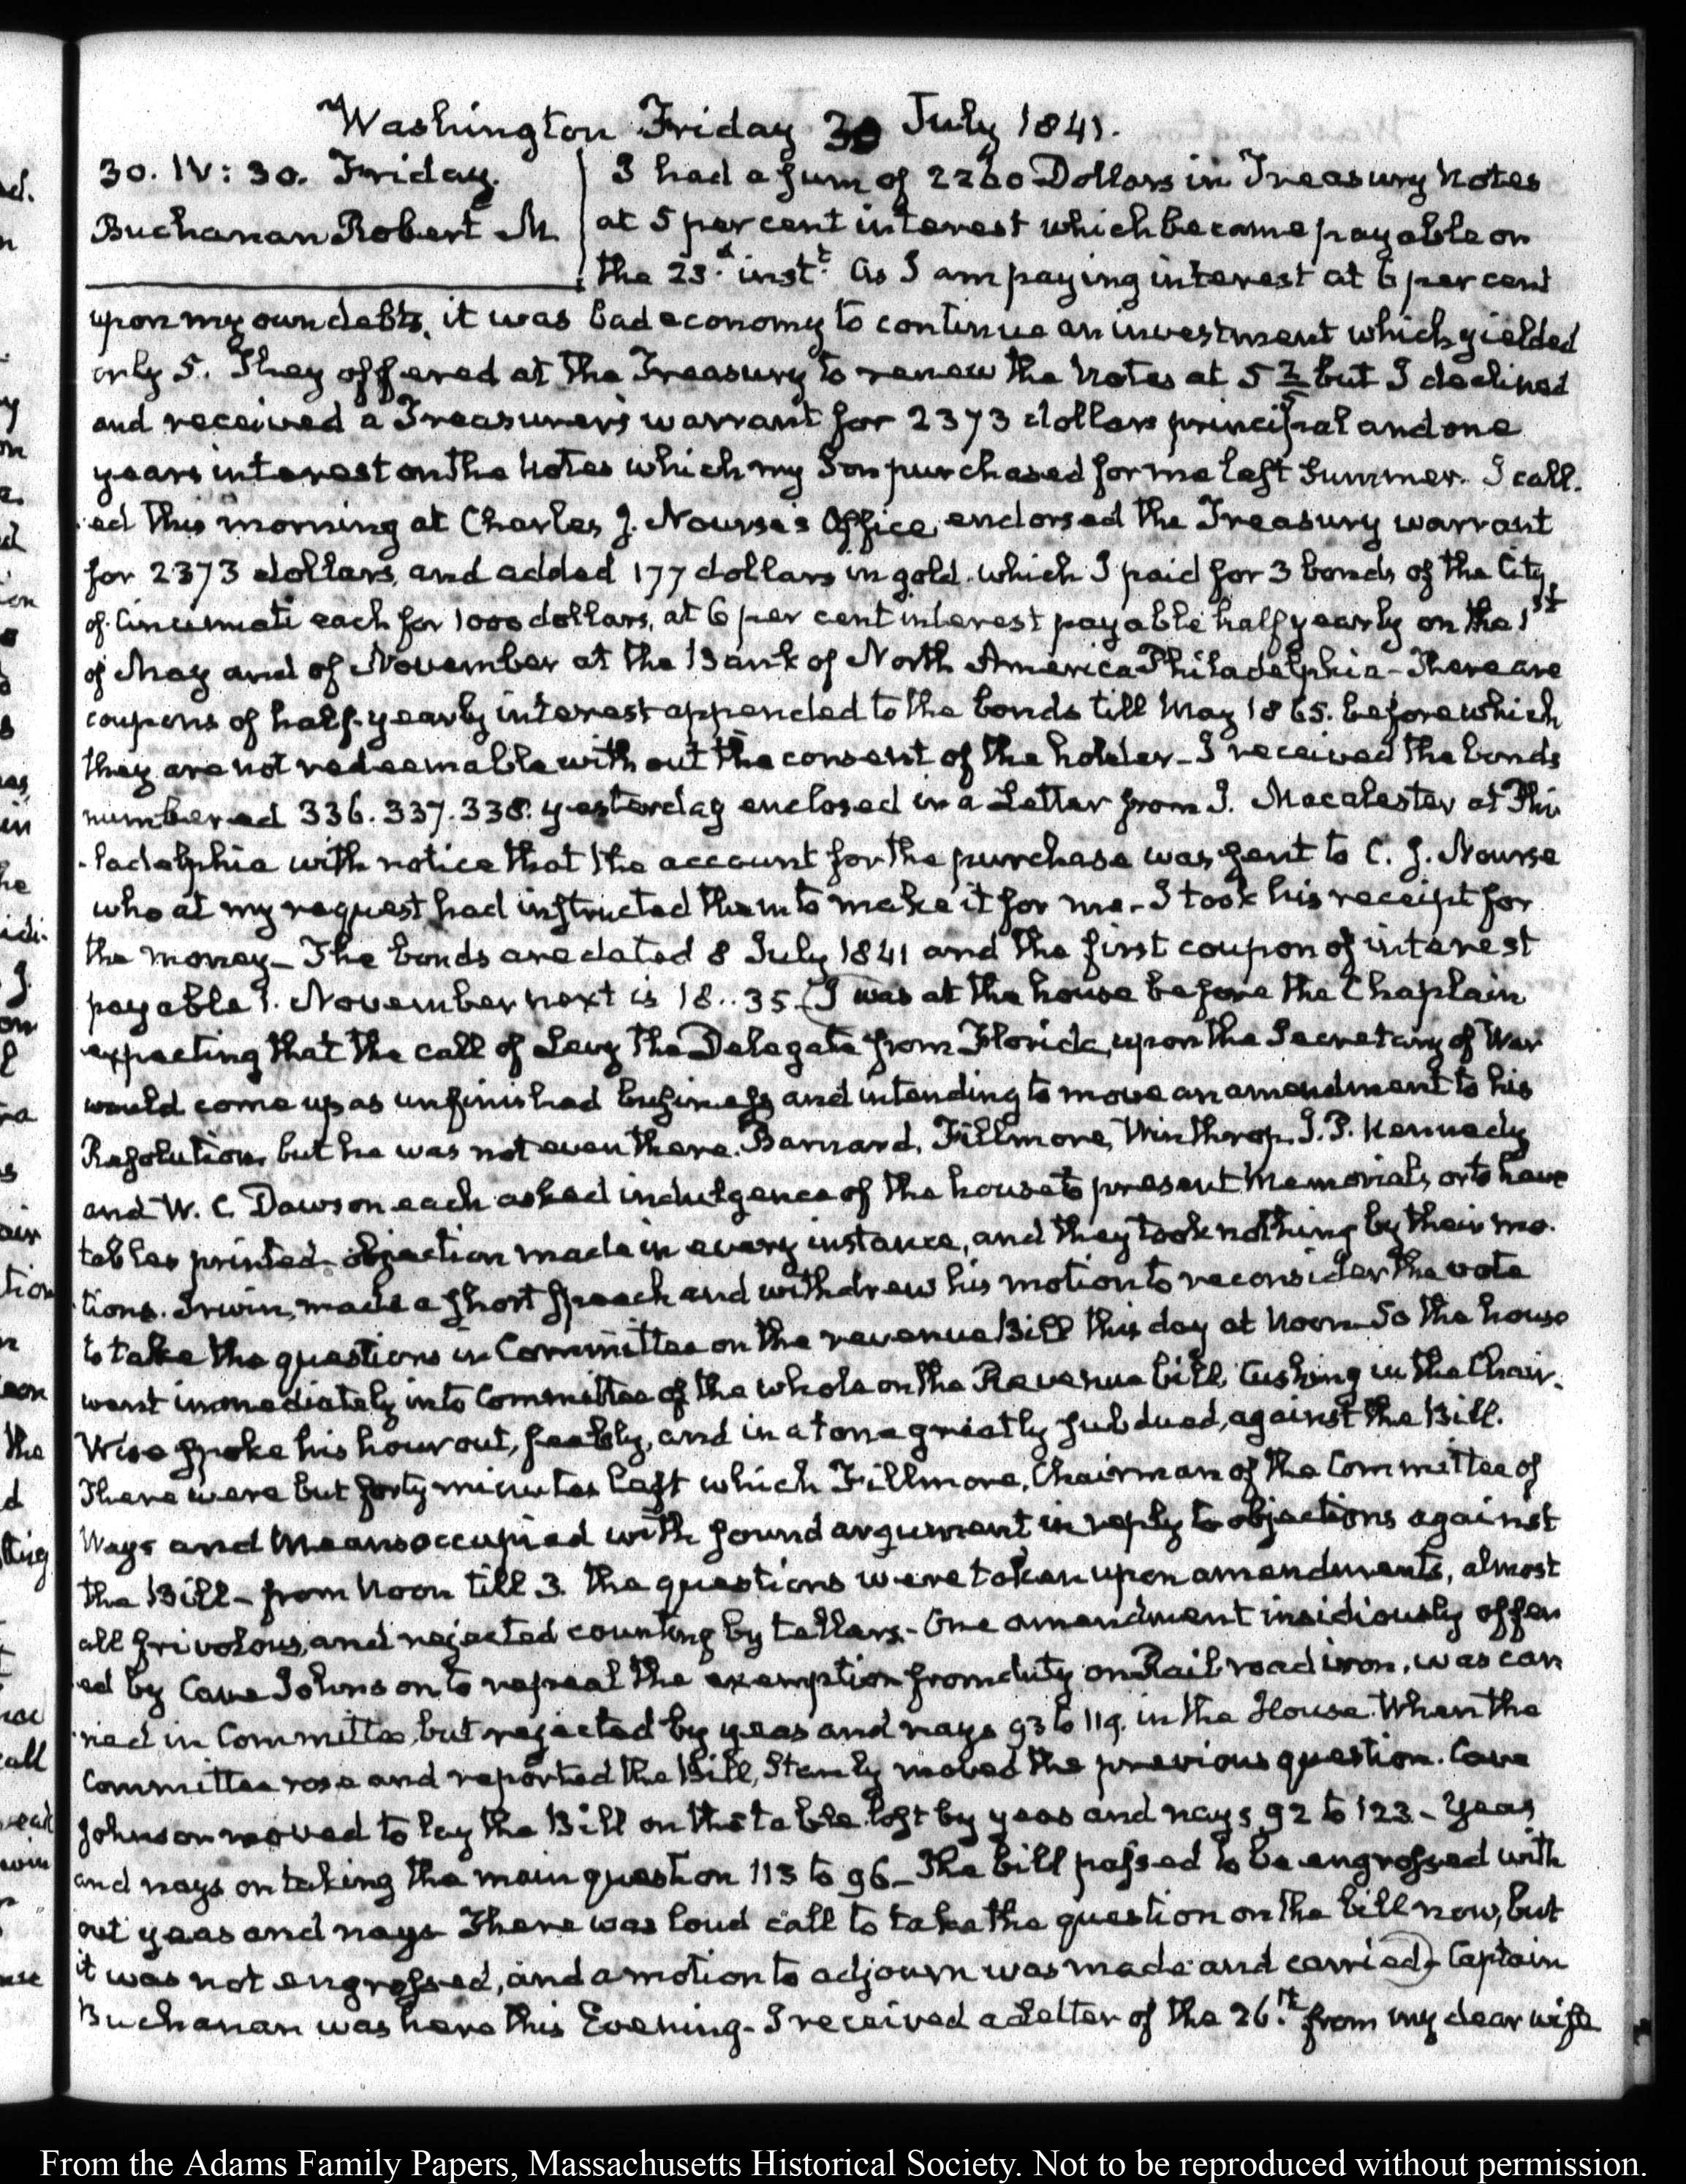 Washington Friday 30 July 1841.
30. IV: 30. Friday.
Buchanan Robert M
I had a sum of 2260 Dollars in Treasury Notes
at 5 per cent interest which became payable on
the 23.d inst.t As I am paying interest at 6 per cent
upon my own debts, it was bad economy to continue an investment which yielded
only 5. They offered at the Treasury to renew the Notes at 5 2/5 but I declined
and received a Treasurer's warrant for 2373 dollars principal and one
years interest on the Notes which my Son purchased for me last Summer. I call-
-ed this morning at Charles J. Nourse's Office, endorsed the Treasury warrant
for 2373 dollars, and added 177 dollars in gold, which I paid for 3 bonds of the City
of Cincinnati each for 1000 dollars, at 6 per cent interest payable half yearly on the 1st
of May and of November at the Bank of North America Philadelphia - There are
coupons of half-yearly interest appended to the bonds till May 1865. before which
they are not redeemable without the consent of the holder - I received the bonds
numbered 336. 337. 338. yesterday enclosed in a Letter from J. Macalester at Phi-
-ladelphia with notice that the account for the purchase was sent to C. J. Nourse
who at my request had instructed them to make it for me - I took his receipt for
the money - The bonds are dated 8 July 1841 and the first coupon of interest
payable 1. November next is 18..35. (I was at the house before the Chaplain
expecting that the call of Levy the Delegate from Florida, upon the Secretary of War
would come up as unfinished business and intending to move an amendment to his
Resolution, but he was not even there. Barnard, Fillmore, Winthrop, J. P. Kennedy
and W. C. Dawson each asked indulgence of the house to present Memorials, or to have
tables printed - objection made in every instance, and they took nothing by their mo-
-tions. Irwin, made a short speech and withdrew his motion to reconsider the vote
to take the questions in Committee on the revenue Bill this day at Noon - So the house
went immediately into Committee of the whole on the Revenue bill, Cushing in the Chair.
Wise spoke his hour out, feebly, and in a tone greatly subdued, against the Bill.
There were but forty minutes left which Fillmore, Chairman of the Committee of
Ways and Means occupied with sound argument in reply to objections against
the Bill - from Noon till 3. the questions were taken upon amendments, almost
all frivolous, and rejected counting by tellers - One amendment insidiously offer-
-ed by Cave Johnson to repeal the exemption from duty on Rail road iron, was car-
-ried in Committee, but rejected by yeas and nays 93 to 119. in the House. When the
Committee rose and reported the Bill, Stanly moved the previous question. Cave
Johnson moved to lay the Bill on the table. lost by yeas and nays 92 to 123 - Yeas
and nays on taking the main question 113 to 96 - The bill passed to be engrossed with-
out yeas and nays - There was loud call to take the question on the bill now, but
it was not engrossed, and a motion to adjourn was made and carried) - Captain
Buchanan was here this Evening - I received a Letter of the 26.th from my dear wife
From the Adams Family Papers, Massachusetts Historical Society. Not to be reproduced without permission.